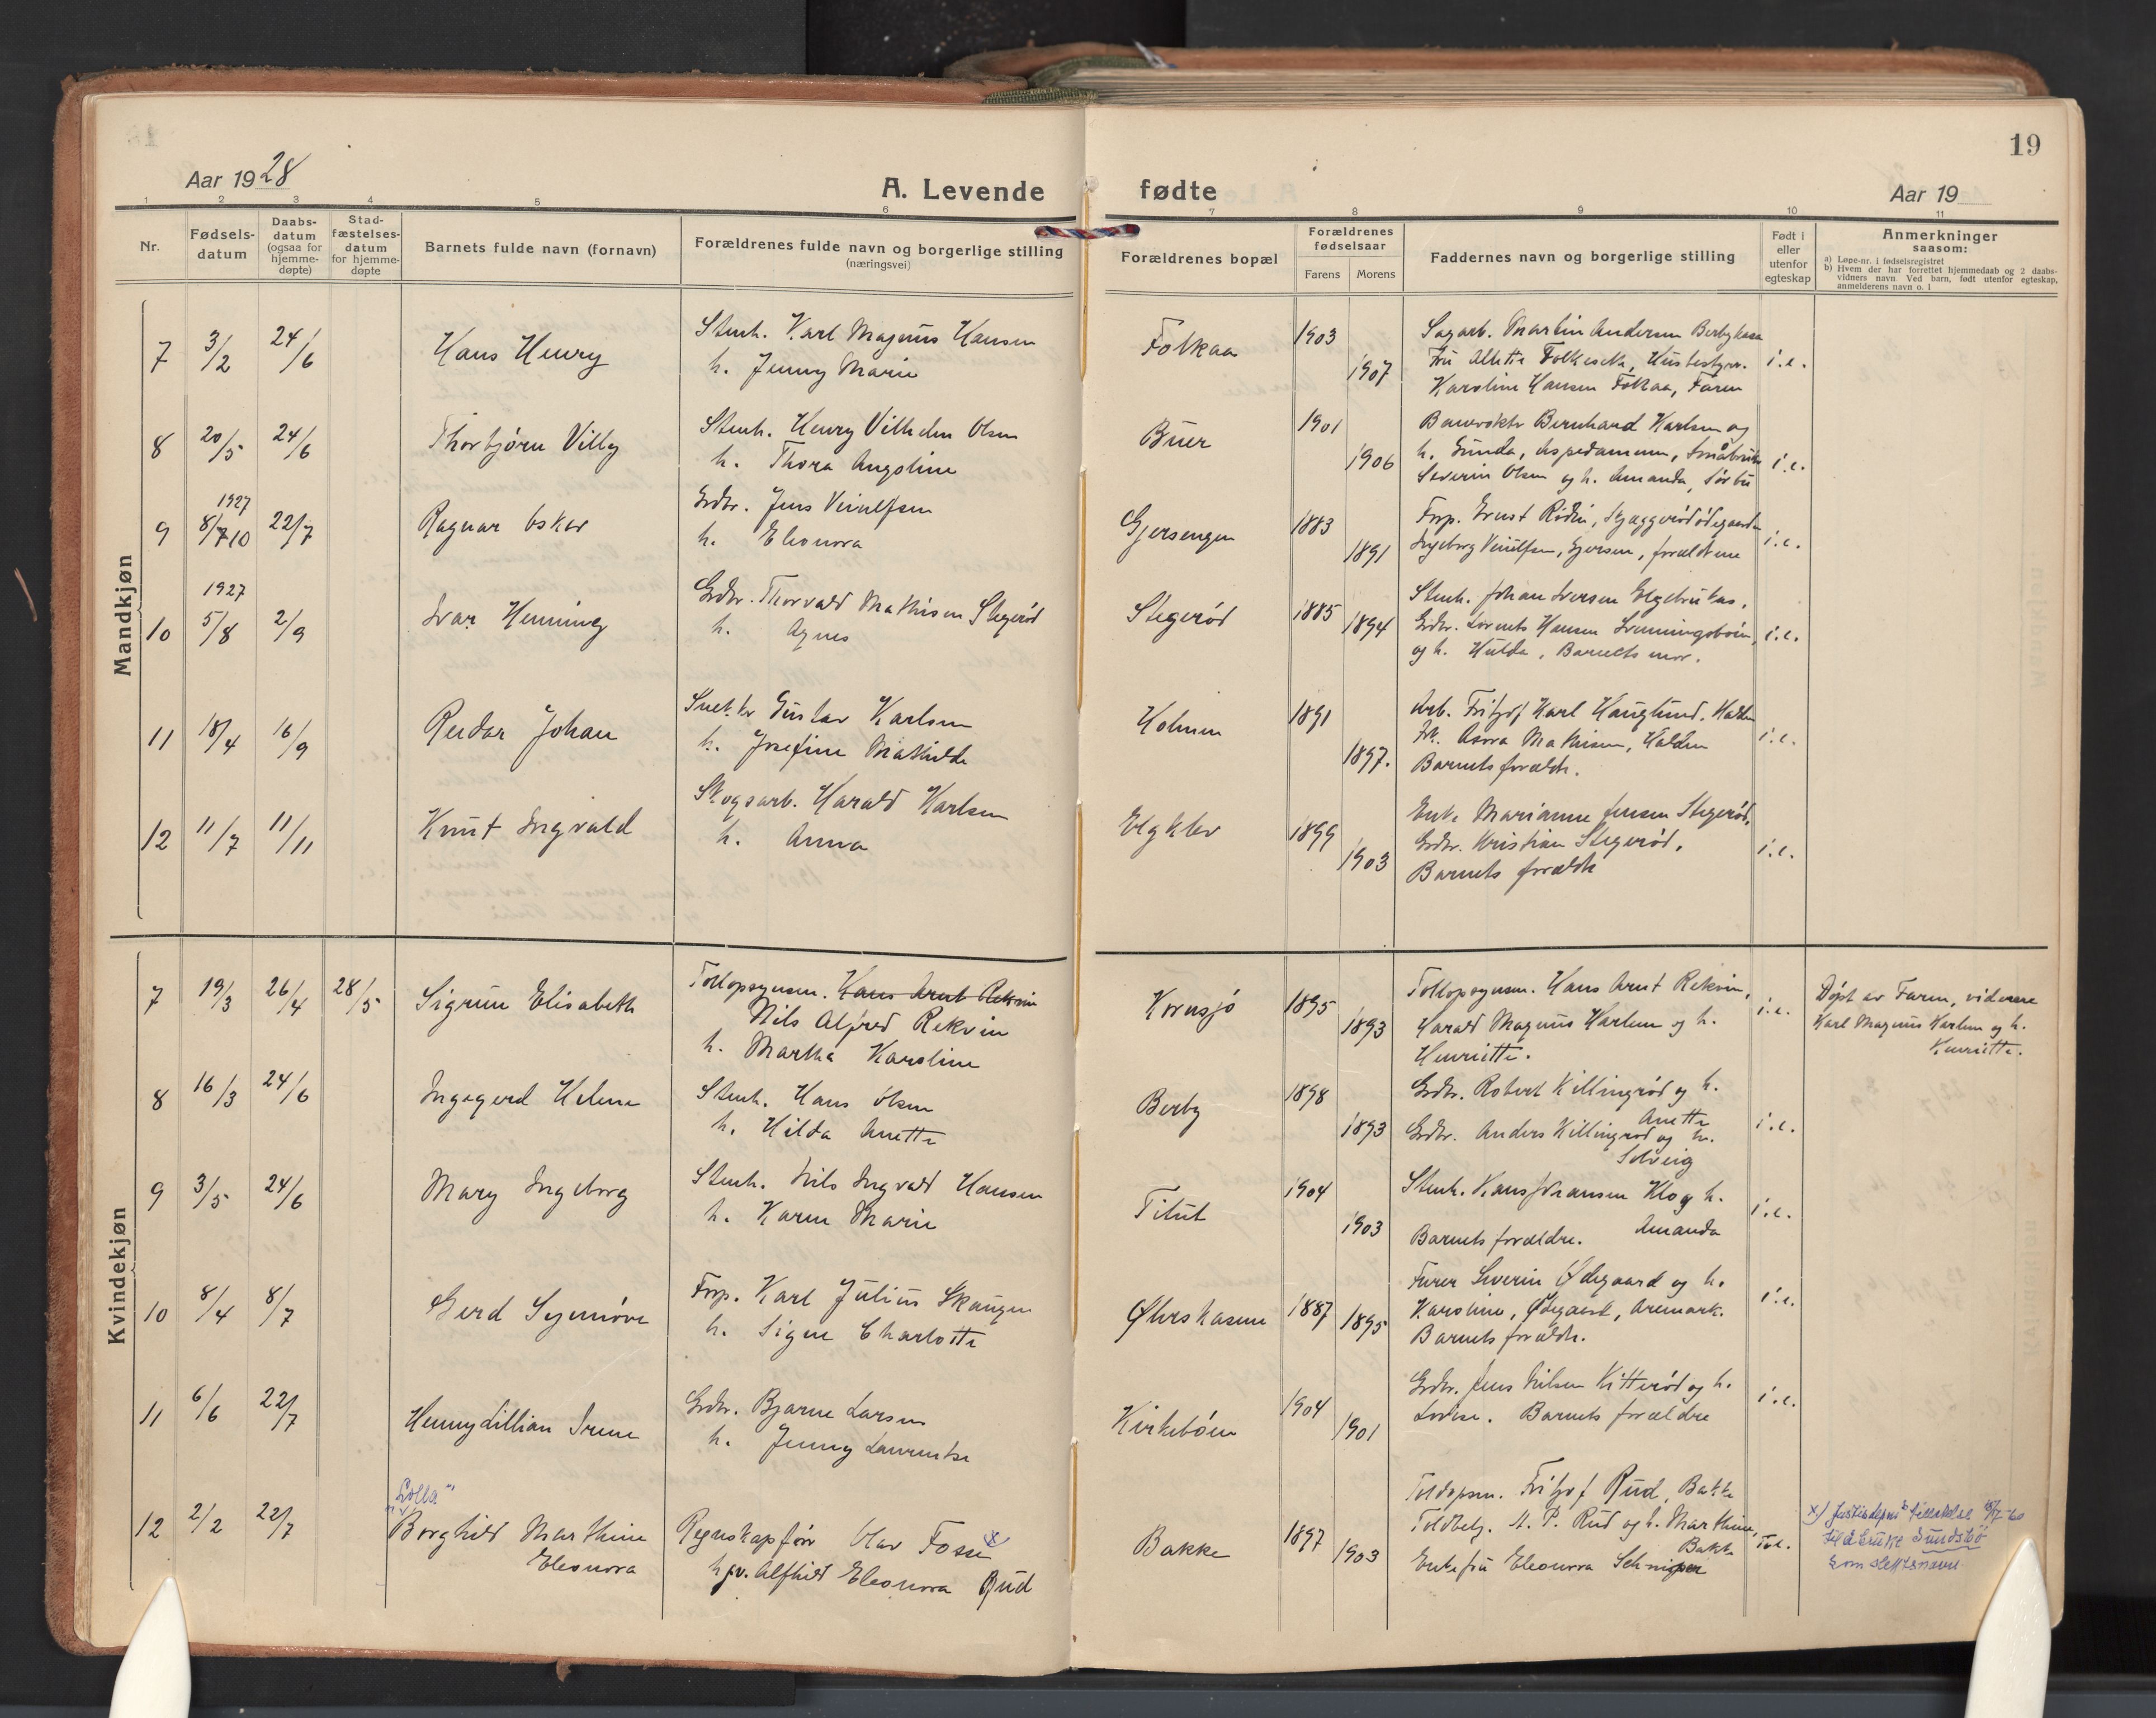 19
Aar 1928
A. Levende fødte
Aar 19
1 2 3 4 5 6 7 8 9 10 11
Nr.
Fødsels-datum
Daabs-datum (ogsaa for hjemme-døpte)
Stad-fæstelses-datum for hjemme-døpte
Barnets fulde navn (fornavn)
Forældrenes fulde navn og borgerlige stilling (næringsvei)
Forældrenes bopæl
Forældrenes fødselsaar
Farens Morens
Faddernes navn og borgerlige stilling
Født i eller utenfor egteskap
Anmerkninger saasom:
a) Løpe-nr. i fødselsregistret
b) Hvem der har forrettet hjemmedaab og 2 daabs-vidners navn. Ved barn, født utenfor egteskap, anmelderens navn o. l
Mandkjøn
7 3/2 24/6 Hans Henry
Stenh. Karl Magnus Hansen
h. Jenny Marie
Folkaa 1903 1907
Sagarb. Martin Andersen
Fru
Karoline Hansen Folkaa, Faren
i.e.
8 20/5 24/6 Thorbjørn Villy
Stenh. Henry Vilhelm Olsen
h. Thora Angoline
Buer 1901 1906
Banevokter Bernhard Karlsen og
h. Gunda, Aspedammen, Småbruker
Severin Olsen og h. Amanda, Sørbu
i.e.
9 1927 8/10 22/7 Ragnar Oskar
Grdbr. Jens Vinulfsen
h. Eleonora
Gjersengen 1883 1891
Forp. Ernst Rödin,
Ingeborg Vinulfsen, Gjersen, forældrene
i.e.
10 1927 5/8 2/9 Ivar Henning
Grdbr. Thorvald Mathisen Stegerød
h. Agnes
Stegerød 1885 1894
Stenh. Johan Iversen
Grdbr. Lorents Hansen
og h. Hulda, Barnets mor.
i.e.
11 18/4 16/9 Reidar Johan
Snekker Gustav Karlsen
h. Josefine Mathilde
Holmen 1891 1897.
Arb. Fritjof Karl Hauglund, Halden
Frk. Asora Mathisen, Halden
Barnets forældr.
i.e.
12 11/7 11/11 Knut Ingvald
Skogsarb. Harald Karlsen
h. Anna
Elgklev 1899 1903
Enke Marianne Jensen Stegerød,
Grdbr. Kristian Stegerød,
Barnets forældr
i.e.
Kvindekjøn
7 19/3 26/4 28/5 Sigrun Elisabeth
Tollopsynsm. Hans Arnt Rekvin
Nils Alfred Rekvin
h. Martha Karoline
Kornsjø 1895 1893
Tollopsynsm. Hans Arnt Rekvin,
Harald Magnus Karlsen og h.
Henriette.
i.e.
Døpt av Faren, vidner
Karl Magnus Karlsen og h.
Henriette.
8 16/3 24/6 Ingegerd Helene
Stenh. Hans Olsen
h. Hilda Anette
Berby 1898 1893
Grdbr. Robert Killingrød og h.
Anette
Grdbr. Anders Killingrød og h.
Solveig
i.e.
9 3/5 24/6 Mary Ingeborg
Stenh. Nils Ingvald Hansen
h. Karen Marie
Titut 1904 1903
Stenh. Hans Johansen Klo og h.
Barnets forældre. Amanda
i.e.
10 8/4 8/7 Gerd Synnøve
Forp. Karl Julius Skaugen
h. Signe Charlotte
1887 1895
Furer Severin Ødegaard og h.
Karoline, Ødegaard, Aremark.
Barnets forældr.
i.e.
11 6/6 22/7 Henny Lillian Irene
Grdbr. Bjarne Larsen
h. Jenny Laurentse
Kirkebøen 1904 1901
Grdbr. Jens Nilsen Kitterød og h.
Lovise. Barnets forældre
i.e.
"Lolla"
12 2/2 22/7 Borghild Marthine
Eleonora
Regnskapsfør Olav Fosse x
hjv. Alfhild Eleonora Rud
Bakke 1897 1903
Toldopsm. Fritjof Rud, Bakke
Toldbetj. A. P. Rud og h. Marthine,
Bakke
Enkefru Eleonora
x)
til å bruke Sundsbö
som slektsnavn